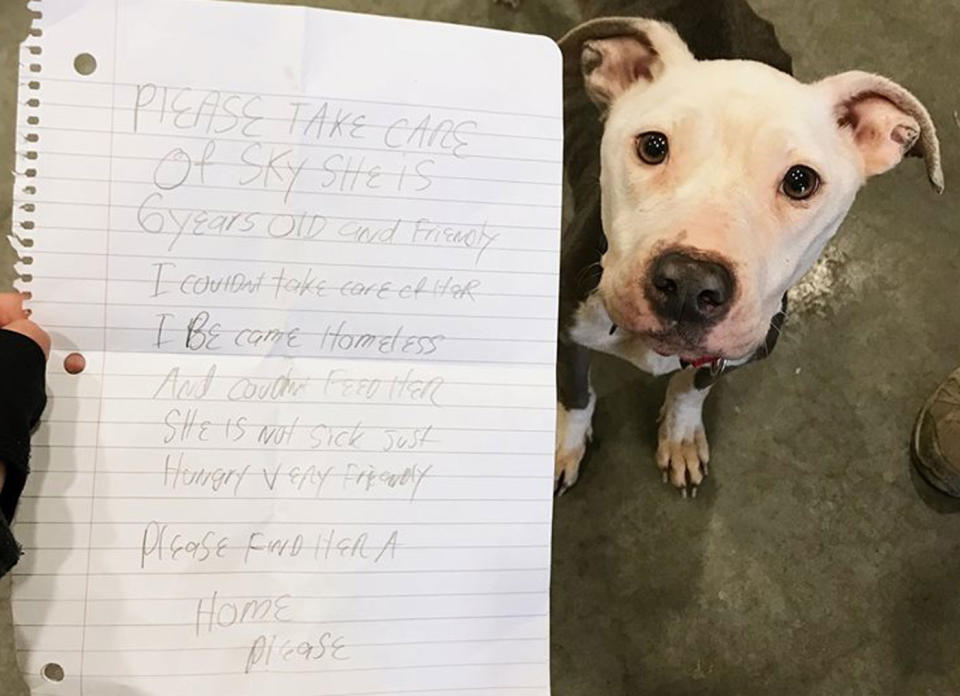 PlEASE TAKE CARE
Of SKY SHE iS
6 years OlD and FriENDly
I couldnt take care of HER
I BE came HomelESS
And couldnt FEED HER
SHE IS Not Sick just
Hungry VERY FriENDly
PlEasE FiND HER A
HomE
plEasE